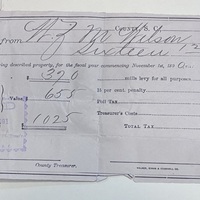 COUNTY, S. C.
from W. J. M. Wilson
Sixteen 12
ing described property, for the fiscal year commencing November 1st, 189
$ 370 mills levy for all purposes
Value $ 655 15 per cent. penalty
Poll Tax
$ 1025 Treasurer's Costs
TOTAL TAX
County Treasurer.